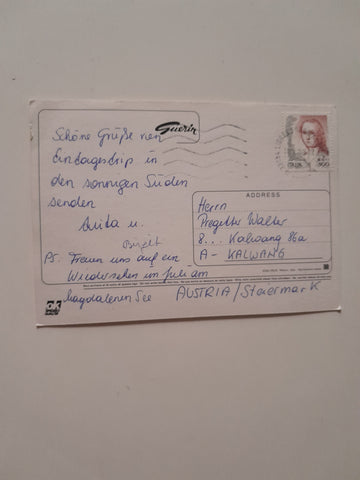 Schöne Grüße vom
Eintagestrip in
den sonnigen Süden
senden
Anita u.
Birgit
PS. Freuen uns auf ein
Wiedersehen im Juli am
Magdalenen See
Guerin
ITALIA
ADDRESS
Herrn
Pregetter Walter
8... Kalwang 86a
A - KALWANG
AUSTRIA / Steiermark